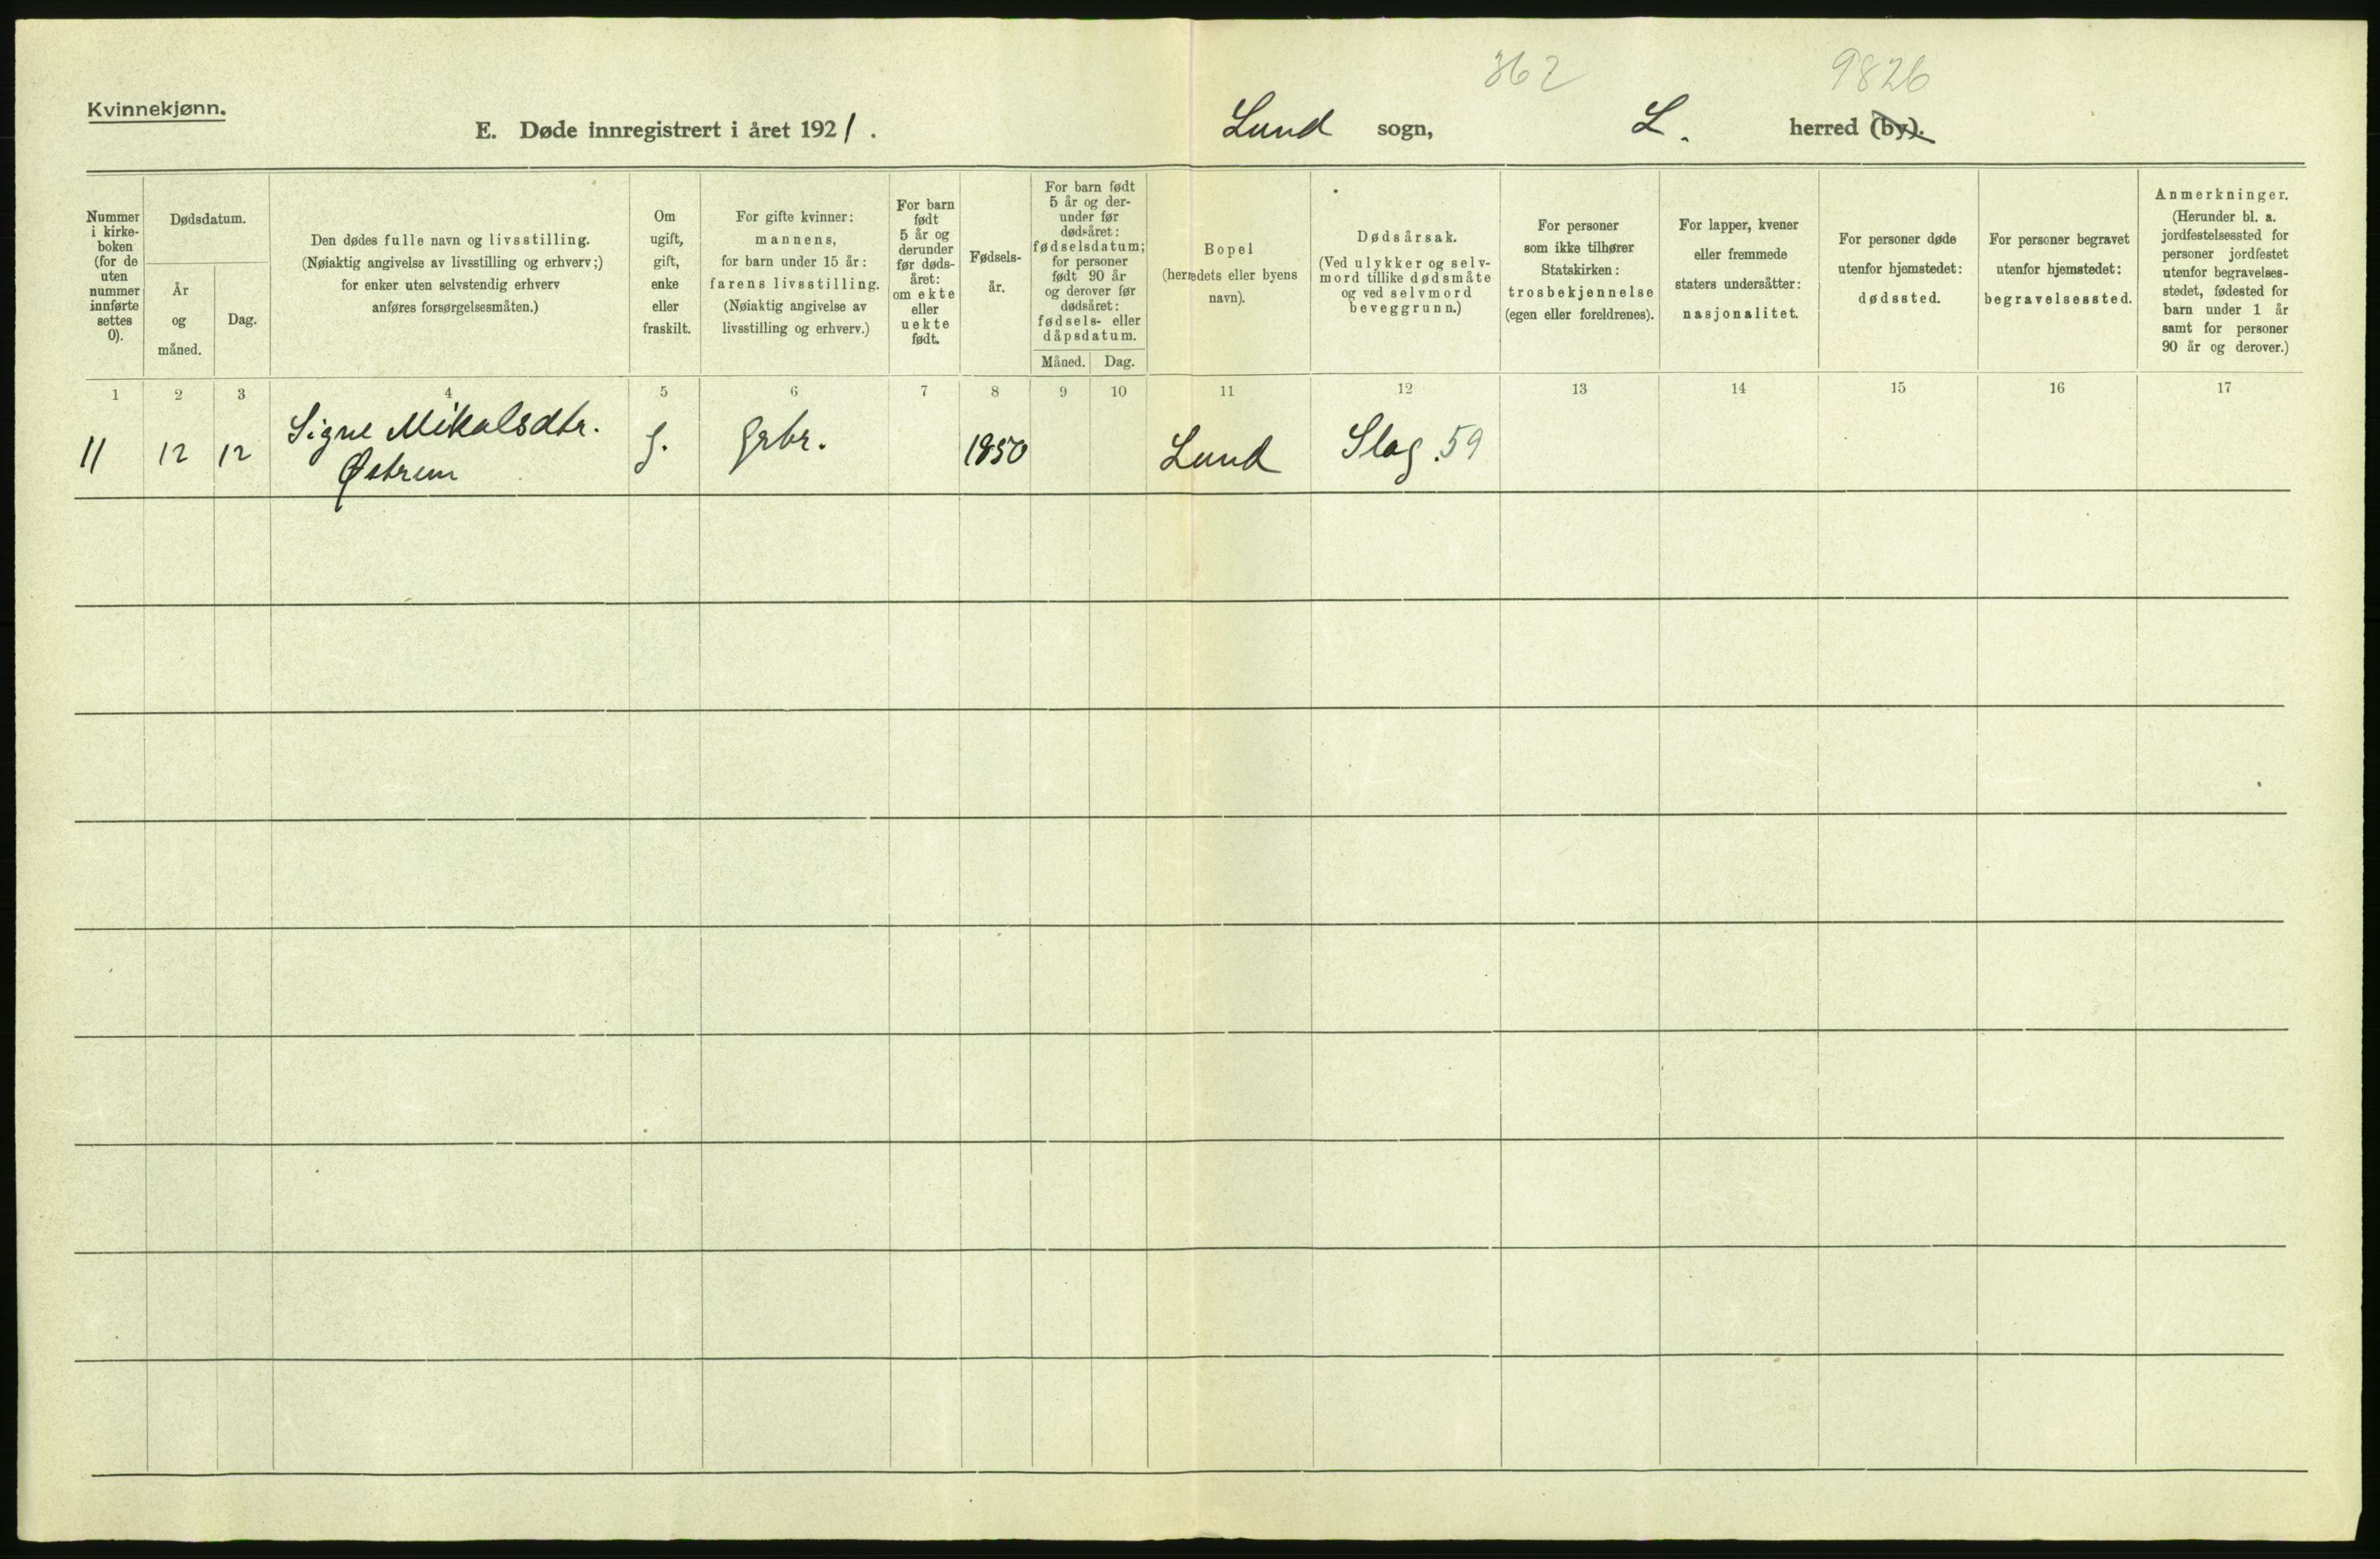 362
9826
Kvinnekjønn.
E. Døde innregistrert i året 1921.
Lund sogn,
L. herred (by).
Nummer
i kirke-
boken
(for de
uten
nummer
innførte
settes
0).
Dødsdatum.
År
og
måned.
Dag.
Den dødes fulle navn og livsstilling.
(Nøiaktig angivelse av livsstilling og erhverv;)
for enker uten selvstendig erhverv
anføres forsørgelsesmåten.)
Om
ugift,
gift,
enke
eller
fraskilt.
For gifte kvinner:
mannens,
for barn under 15 år:
farens livsstilling.
(Nøiaktig angivelse av
livsstilling og erhverv.)
For barn
født
5 år og
derunder
før døds-
året:
om ekte
eller
uekte
født.
Fødsels-
år.
For barn født
5 år og der-
under før
dødsåret:
fødselsdatum;
for personer
født 90 år
og derover før
dødsåret:
fødsels- eller
dåpsdatum.
Måned.
Dag.
Bopel
(herredets eller byens
navn).
Dødsårsak.
(Ved ulykker og selv-
mord tillike dødsmåte
og ved selvmord
beveggrunn.)
For personer
som ikke tilhører
Statskirken:
trosbekjennelse
(egen eller foreldrenes).
For lapper, kvener
eller fremmede
staters undersåtter:
nasjonalitet.
For personer døde
utenfor hjemstedet:
dødssted.
For personer begravet
utenfor hjemstedet:
begravelsessted.
Anmerkninger.
(Herunder bl. a.
jordfestelsessted for
personer jordfestet
utenfor begravelses-
stedet, fødested for
barn under 1 år
samt for personer
90 år og derover.)
1 2 3 4 5 6 7 8 9 10 11 12 13 14 15 16 17
11 12 12 Signe Mikalsdtr. g. grbr. 1850 Lund Slag. 59
Østrem